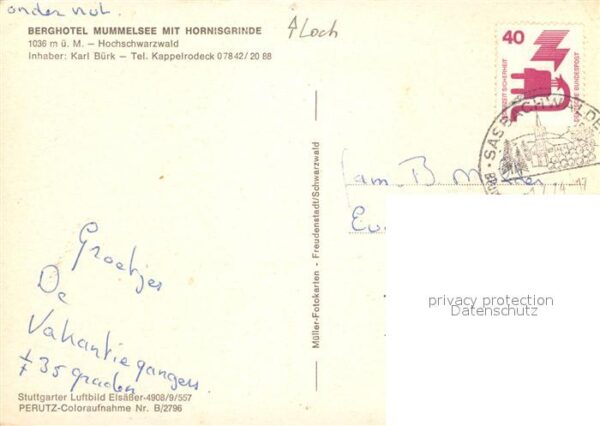 onder nul.
BERGHOTEL MUMMELSEE MIT HORNISGRINDE
1036 m ü. M. – Hochschwarzwald
Inhaber: Karl Bürk – Tel. Kappelrodeck 07842/20 88
Loch
40
DEUTSCHE BUNDESPOST
SASBACHWALDE
Fam. B. M
Groetjes
De
Vakantiegangers
± 35 graden
Müller-Fotokarten - Freudenstadt/Schwarzwald
privacy protection
Datenschutz
Stuttgarter Luftbild Elsäßer-4908/9/557
PERUTZ-Coloraufnahme Nr. B/2796